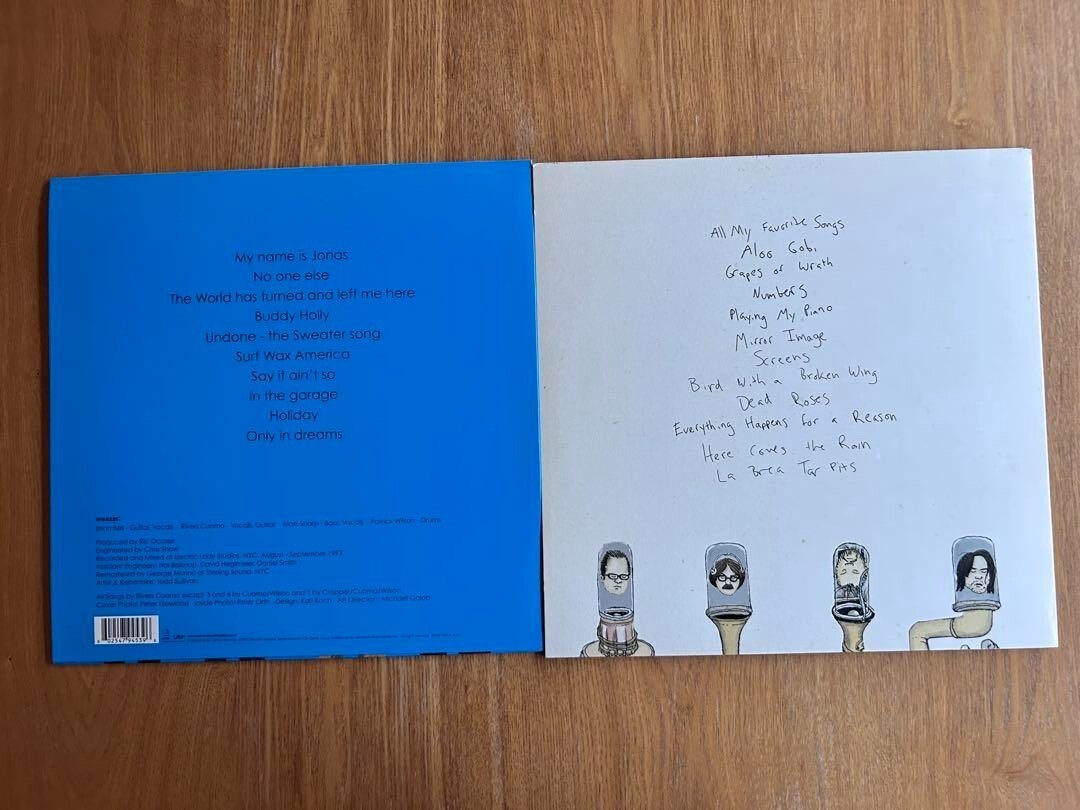 My name is Jonas
No one else
The World has turned and left me here
Buddy Holly
Undone - the Sweater song
Surf Wax America
Say it ain't so
In the garage
Holiday
Only in dreams
weezer:
Brian Bell - Guitar, Vocals Rivers Cuomo - Vocals, Guitar Matt Sharp - Bass, Vocals Patrick Wilson - Drums
Produced by Ric Ocasek
Engineered by Chris Shaw
Recorded and Mixed at Electric Lady Studios, NYC, August - September 1993
Assistant Engineers: Hal Belknap, David Heglmeier, Daniel Smith
Remastered by George Marino at Sterling Sound, NYC
Artist & Repertoire: Todd Sullivan
All Songs by Rivers Cuomo except 3 and 6 by Cuomo/Wilson and 1 by Cropper/Cuomo/Wilson
Cover Photo: Peter Gowland Inside Photo: Peter Orth Design: Karl Koch Art Direction: Michael Golob
6 02547 94539 6
All My Favorite Songs
Aloo Gobi
Grapes of Wrath
Numbers
Playing My Piano
Mirror Image
Screens
Bird With a Broken Wing
Dead Roses
Everything Happens for a Reason
Here Comes the Rain
La Brea Tar Pits